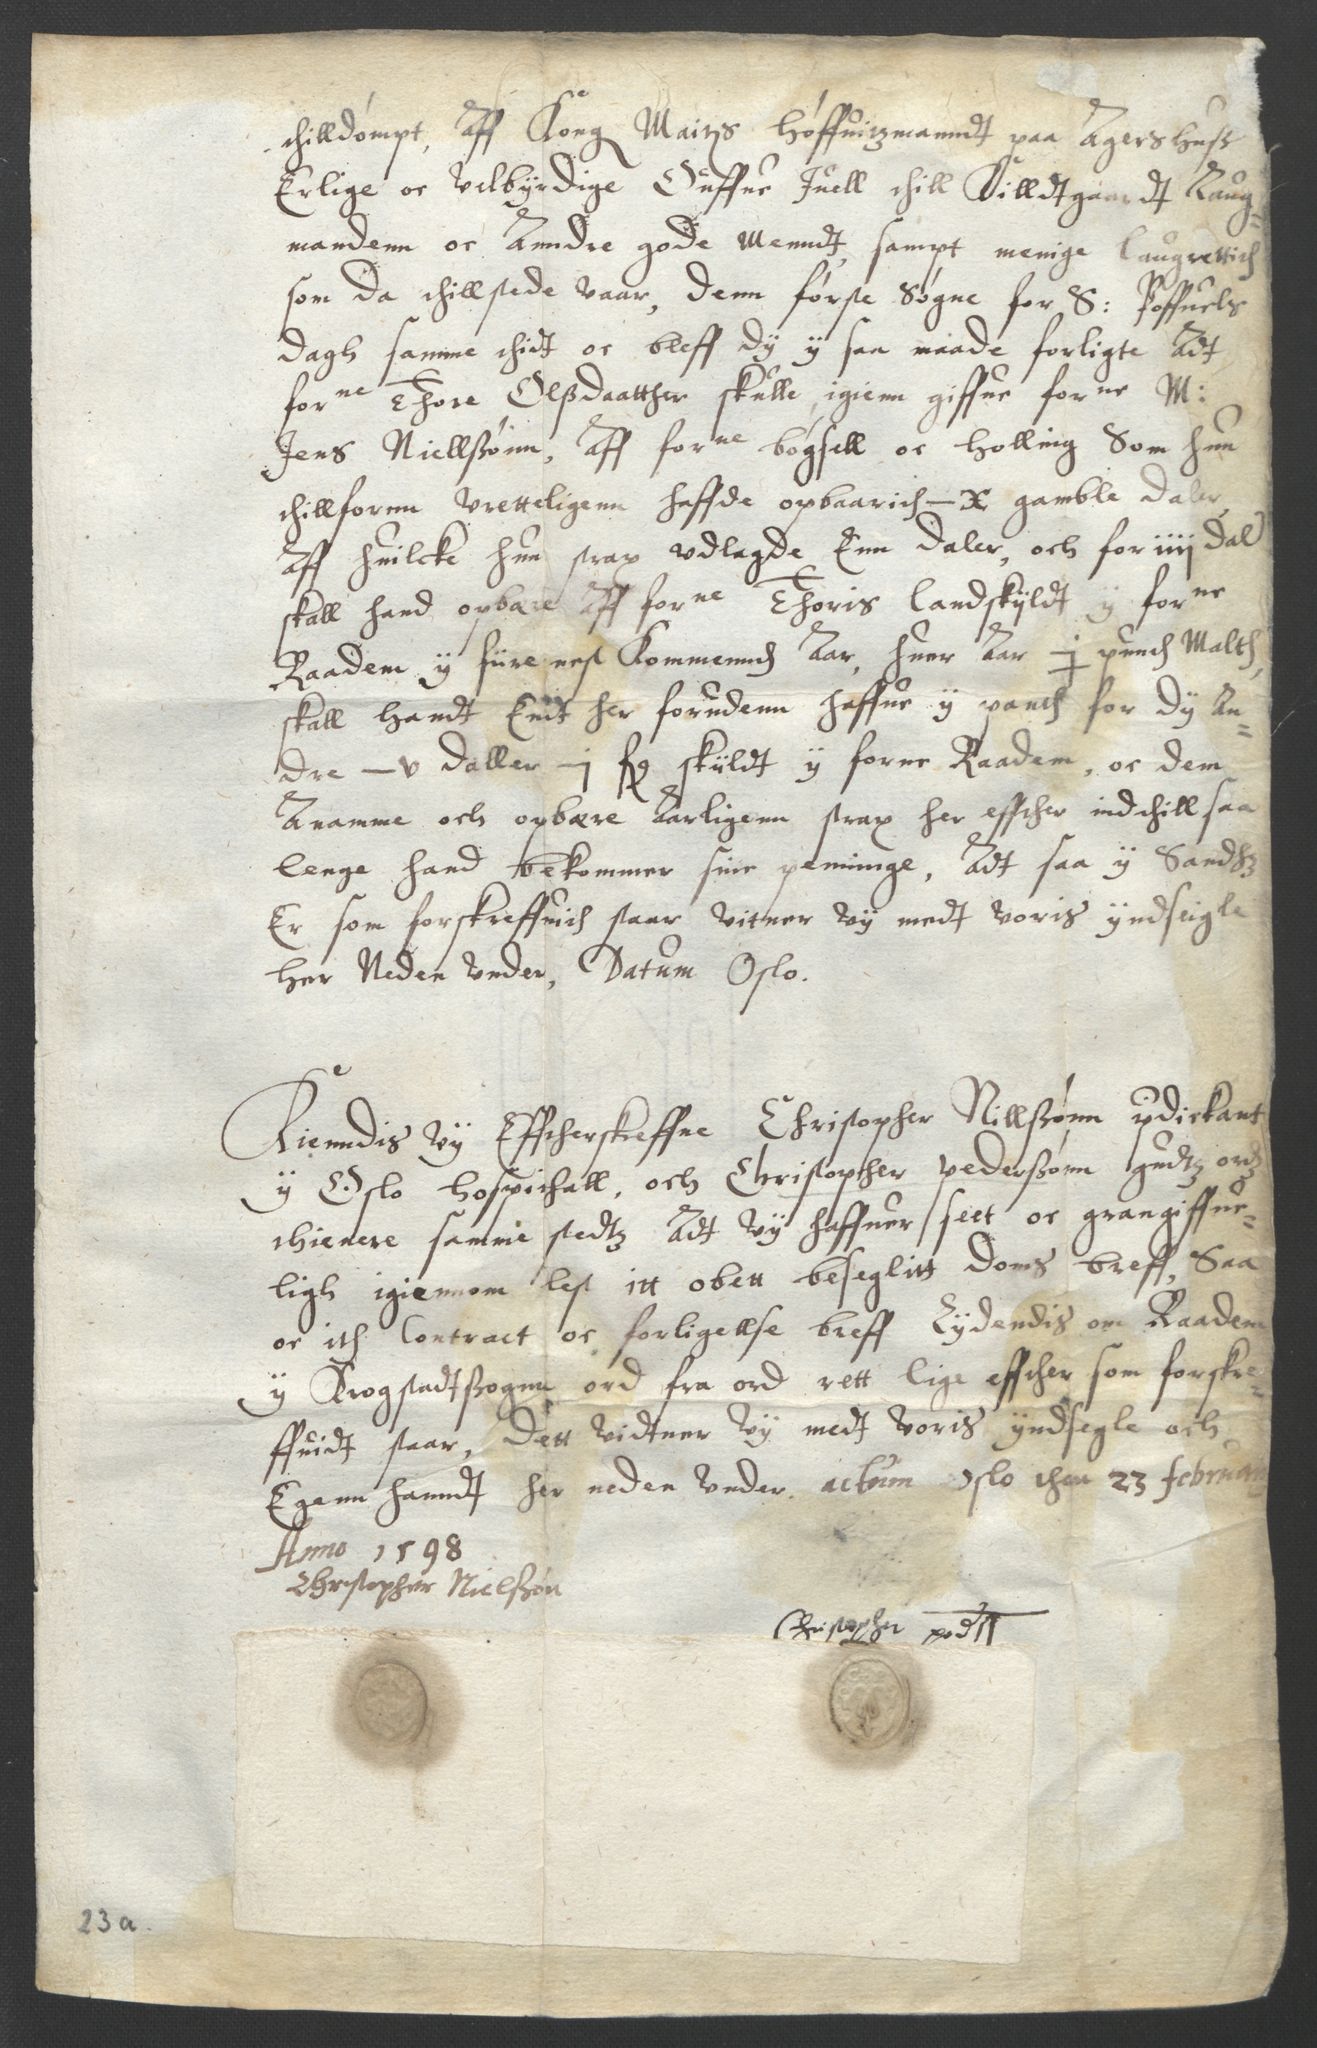 thilldømpt, Aff Kong Maitz høffuitzmanndt paa Agershuss
Erlige oc velbyrdige Ouffue Juell thill Killdtgaardt Laug=
mandenn oc Anndre gode Menndt, sampt menige laugrettith
som da thillstede vaar, Denn første Søgne for S: Poffuels
dagh samme thidt oc bleff dy y saa maade forligte Adt
forne Thore Olßdaatther skulle igienn giffue forne M:
Jens Niellßønn, Aff forne bøgsell oc holling Som hun
thillfornn vretteligenn haffde opbaarith – x gamble daler,
Aff huilcke hun strax vdlagde Enn daler, och for iiij dal
skall hand opbære Aff forne Thoris landskyldt y forne
Raadem y fiire nest Kommennd Aar, huer Aar j pund Malth,
skall handt End her forudenn haffue y panth for dy An=
dre – v daller – j skyldt y forne Raadem, oc dem
Anamme och opbære Aarligenn strax her effther indthill saa
lenge hand bekommer sine penninge, Adt saa y Sandhz
Er som forskreffuith staar vitner vy medt voris yndseigle
her Neden vnder, Datum Oslo.
Kienndis vy Efftherskreffne Christopher Nillßønn pdickant
y Oslo hospithall, och Christopher pederßønn gudtz ordz
thienere samme stedtz Adt vy haffuer seet oc grangiffue=
ligh igiennom lest itt obett beseglitt Doms breff, Saa
oc ith Contract oc forligellse breff Lydendis om Raadem
y Krogstadtßogne ord fra ord rett lige effther som forskre=
ffuidt staar, Dett vidtner vy medt voris yndsegle och
Egenn hanndt her neden vnder. actum Oslo then 23 februarij
Anno 1598
Christopher Nielßøn
Christopher pedß
23a.